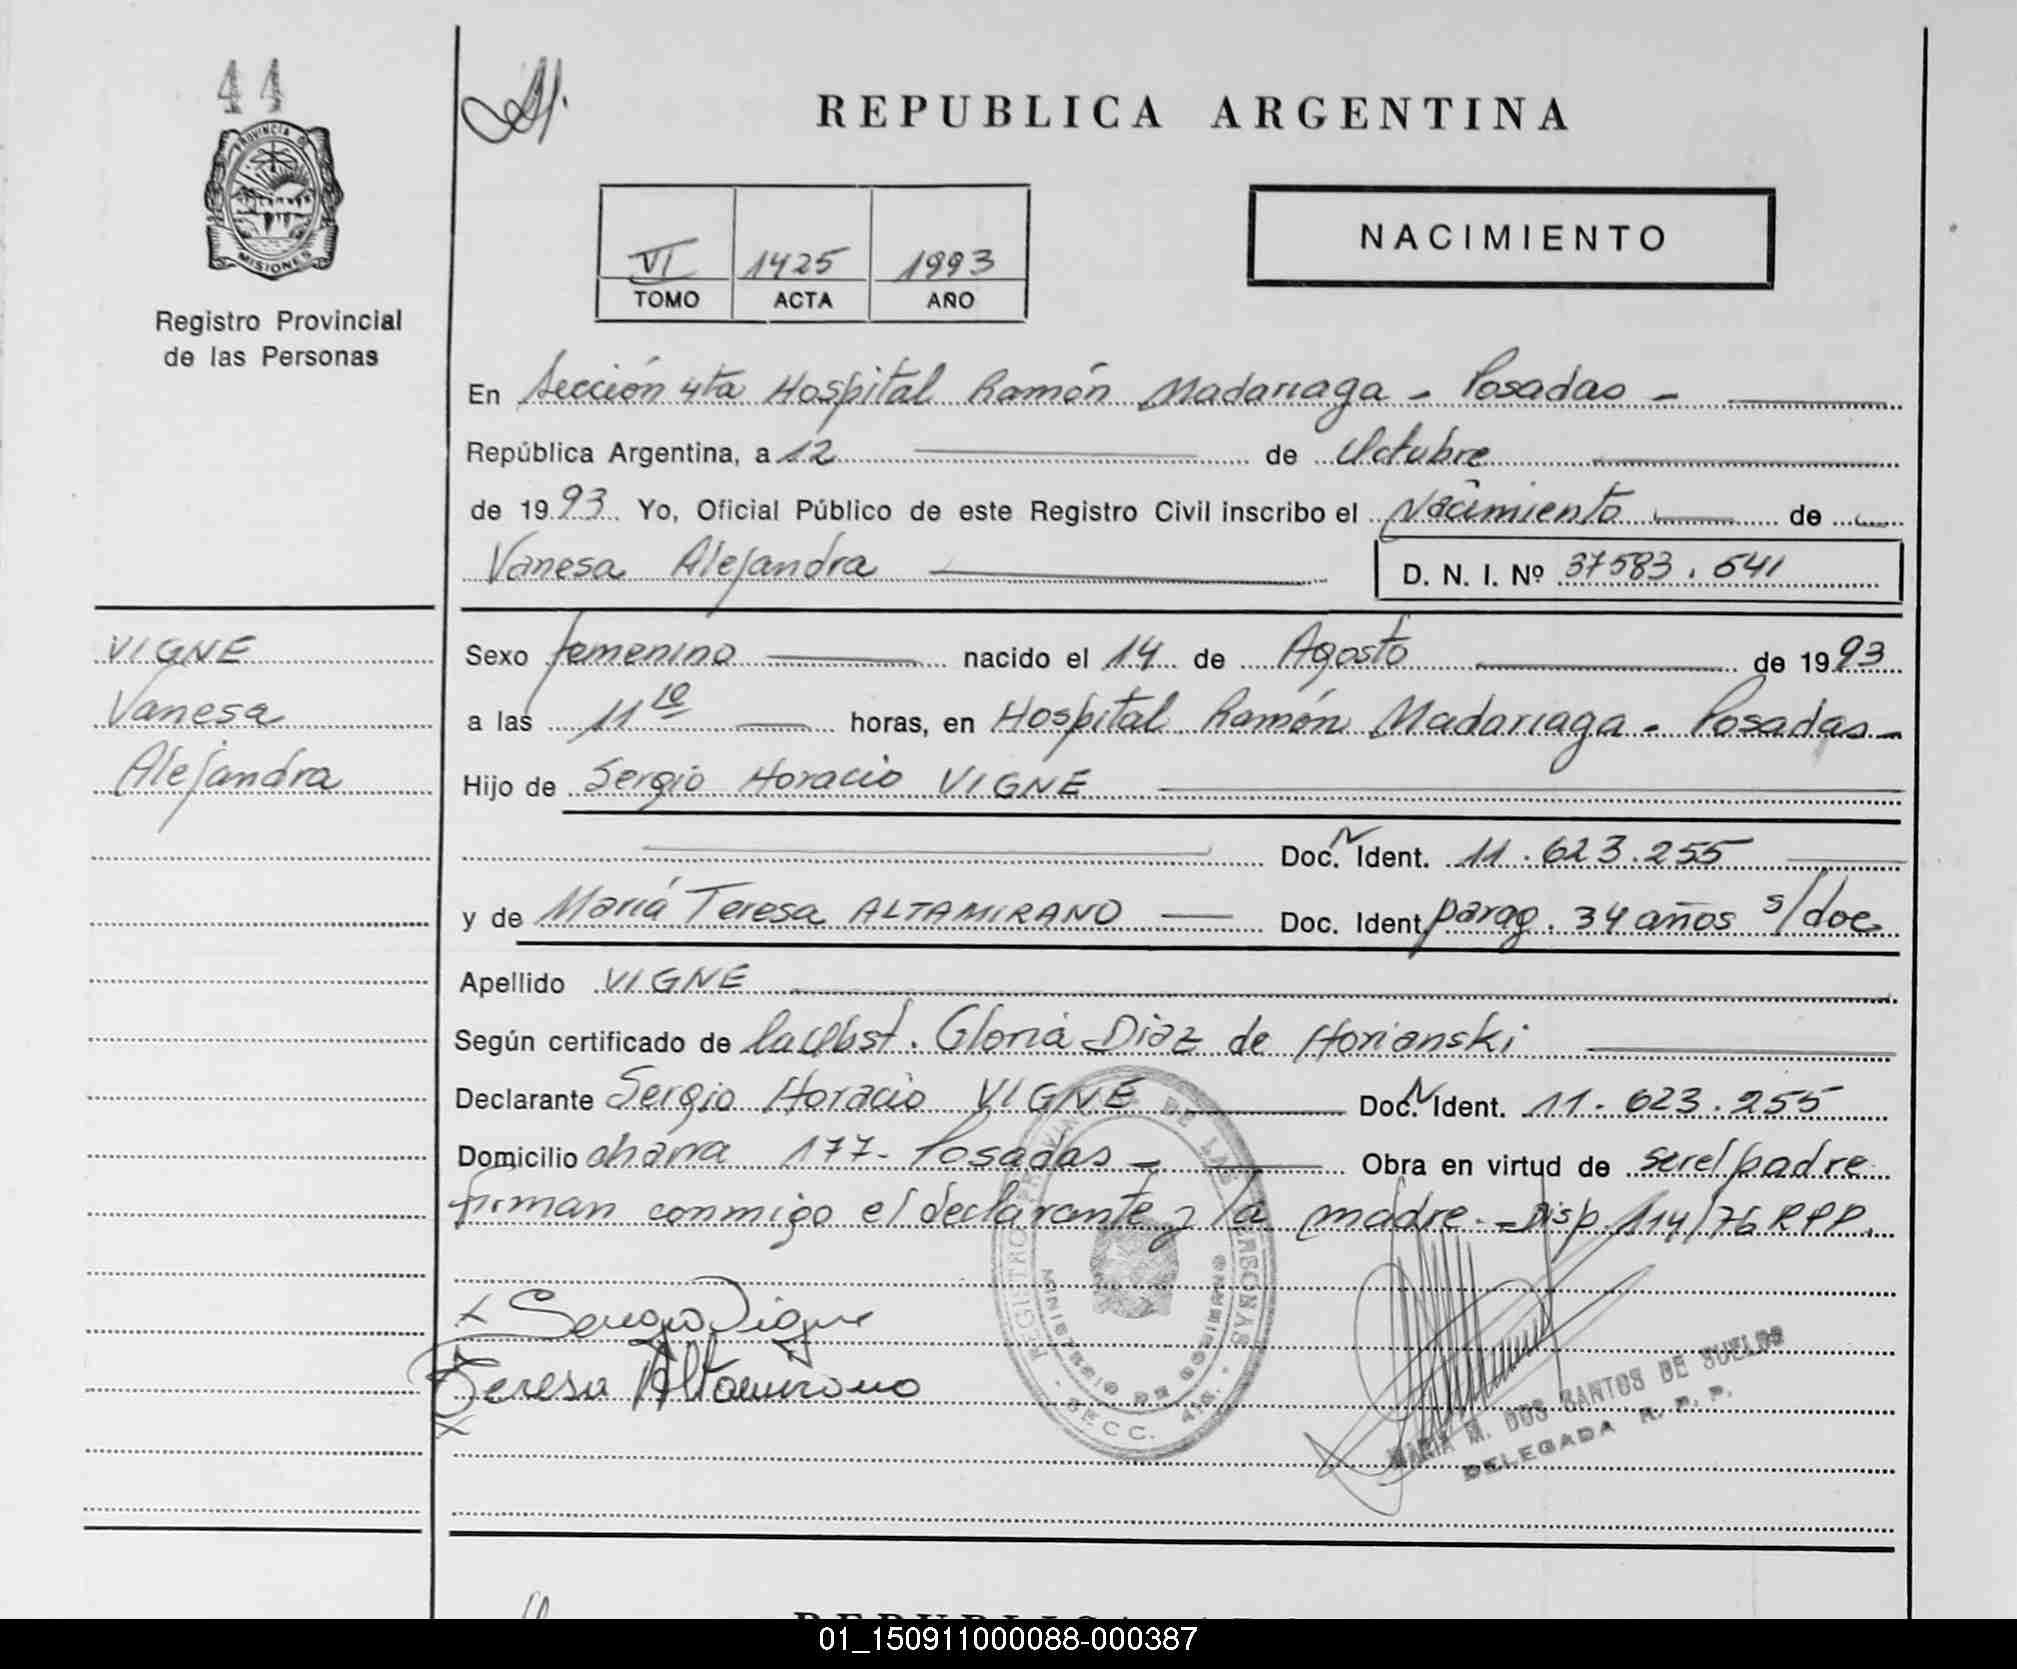 44
REPUBLICA ARGENTINA
PROVINCIA D
MISIONES
Registro Provincial
de las Personas
VI 1425 1993
TOMO ACTA AÑO
NACIMIENTO
En Sección 4ta Hospital Ramón Madariaga - Posadas -
República Argentina, a 12 de Octubre
de 1993 Yo, Oficial Público de este Registro Civil inscribo el Nacimiento de
Vanesa Alejandra D. N. I. Nº 37583.541
VIGNE
Vanesa
Alejandra
Sexo femenino nacido el 14 de Agosto de 1993
a las 11 10 horas, en Hospital Ramón Madariaga - Posadas -
Hijo de Sergio Horacio VIGNE
Doc. N Ident. 11.623.255
y de María Teresa ALTAMIRANO Doc. Ident. parag. 34 años s/doc
Apellido VIGNE
Según certificado de la Obst. Gloria Diaz de Horianski
Declarante Sergio Horacio VIGNE Doc. N Ident. 11.623.255
Domicilio charra 177 - Posadas - Obra en virtud de ser el padre
firman conmigo el declarante y la madre. - Disp. 114/76 RPP.
x Sergio Vigne
Teresa Altamirano
x
REGISTRO PROVINCIAL DE LAS PERSONAS
MINISTERIO DE GOBIERNO
SECC. 4ta.
MARIA M. DOS SANTOS DE SUELOS
DELEGADA R. P. P.
01_150911000088-000387